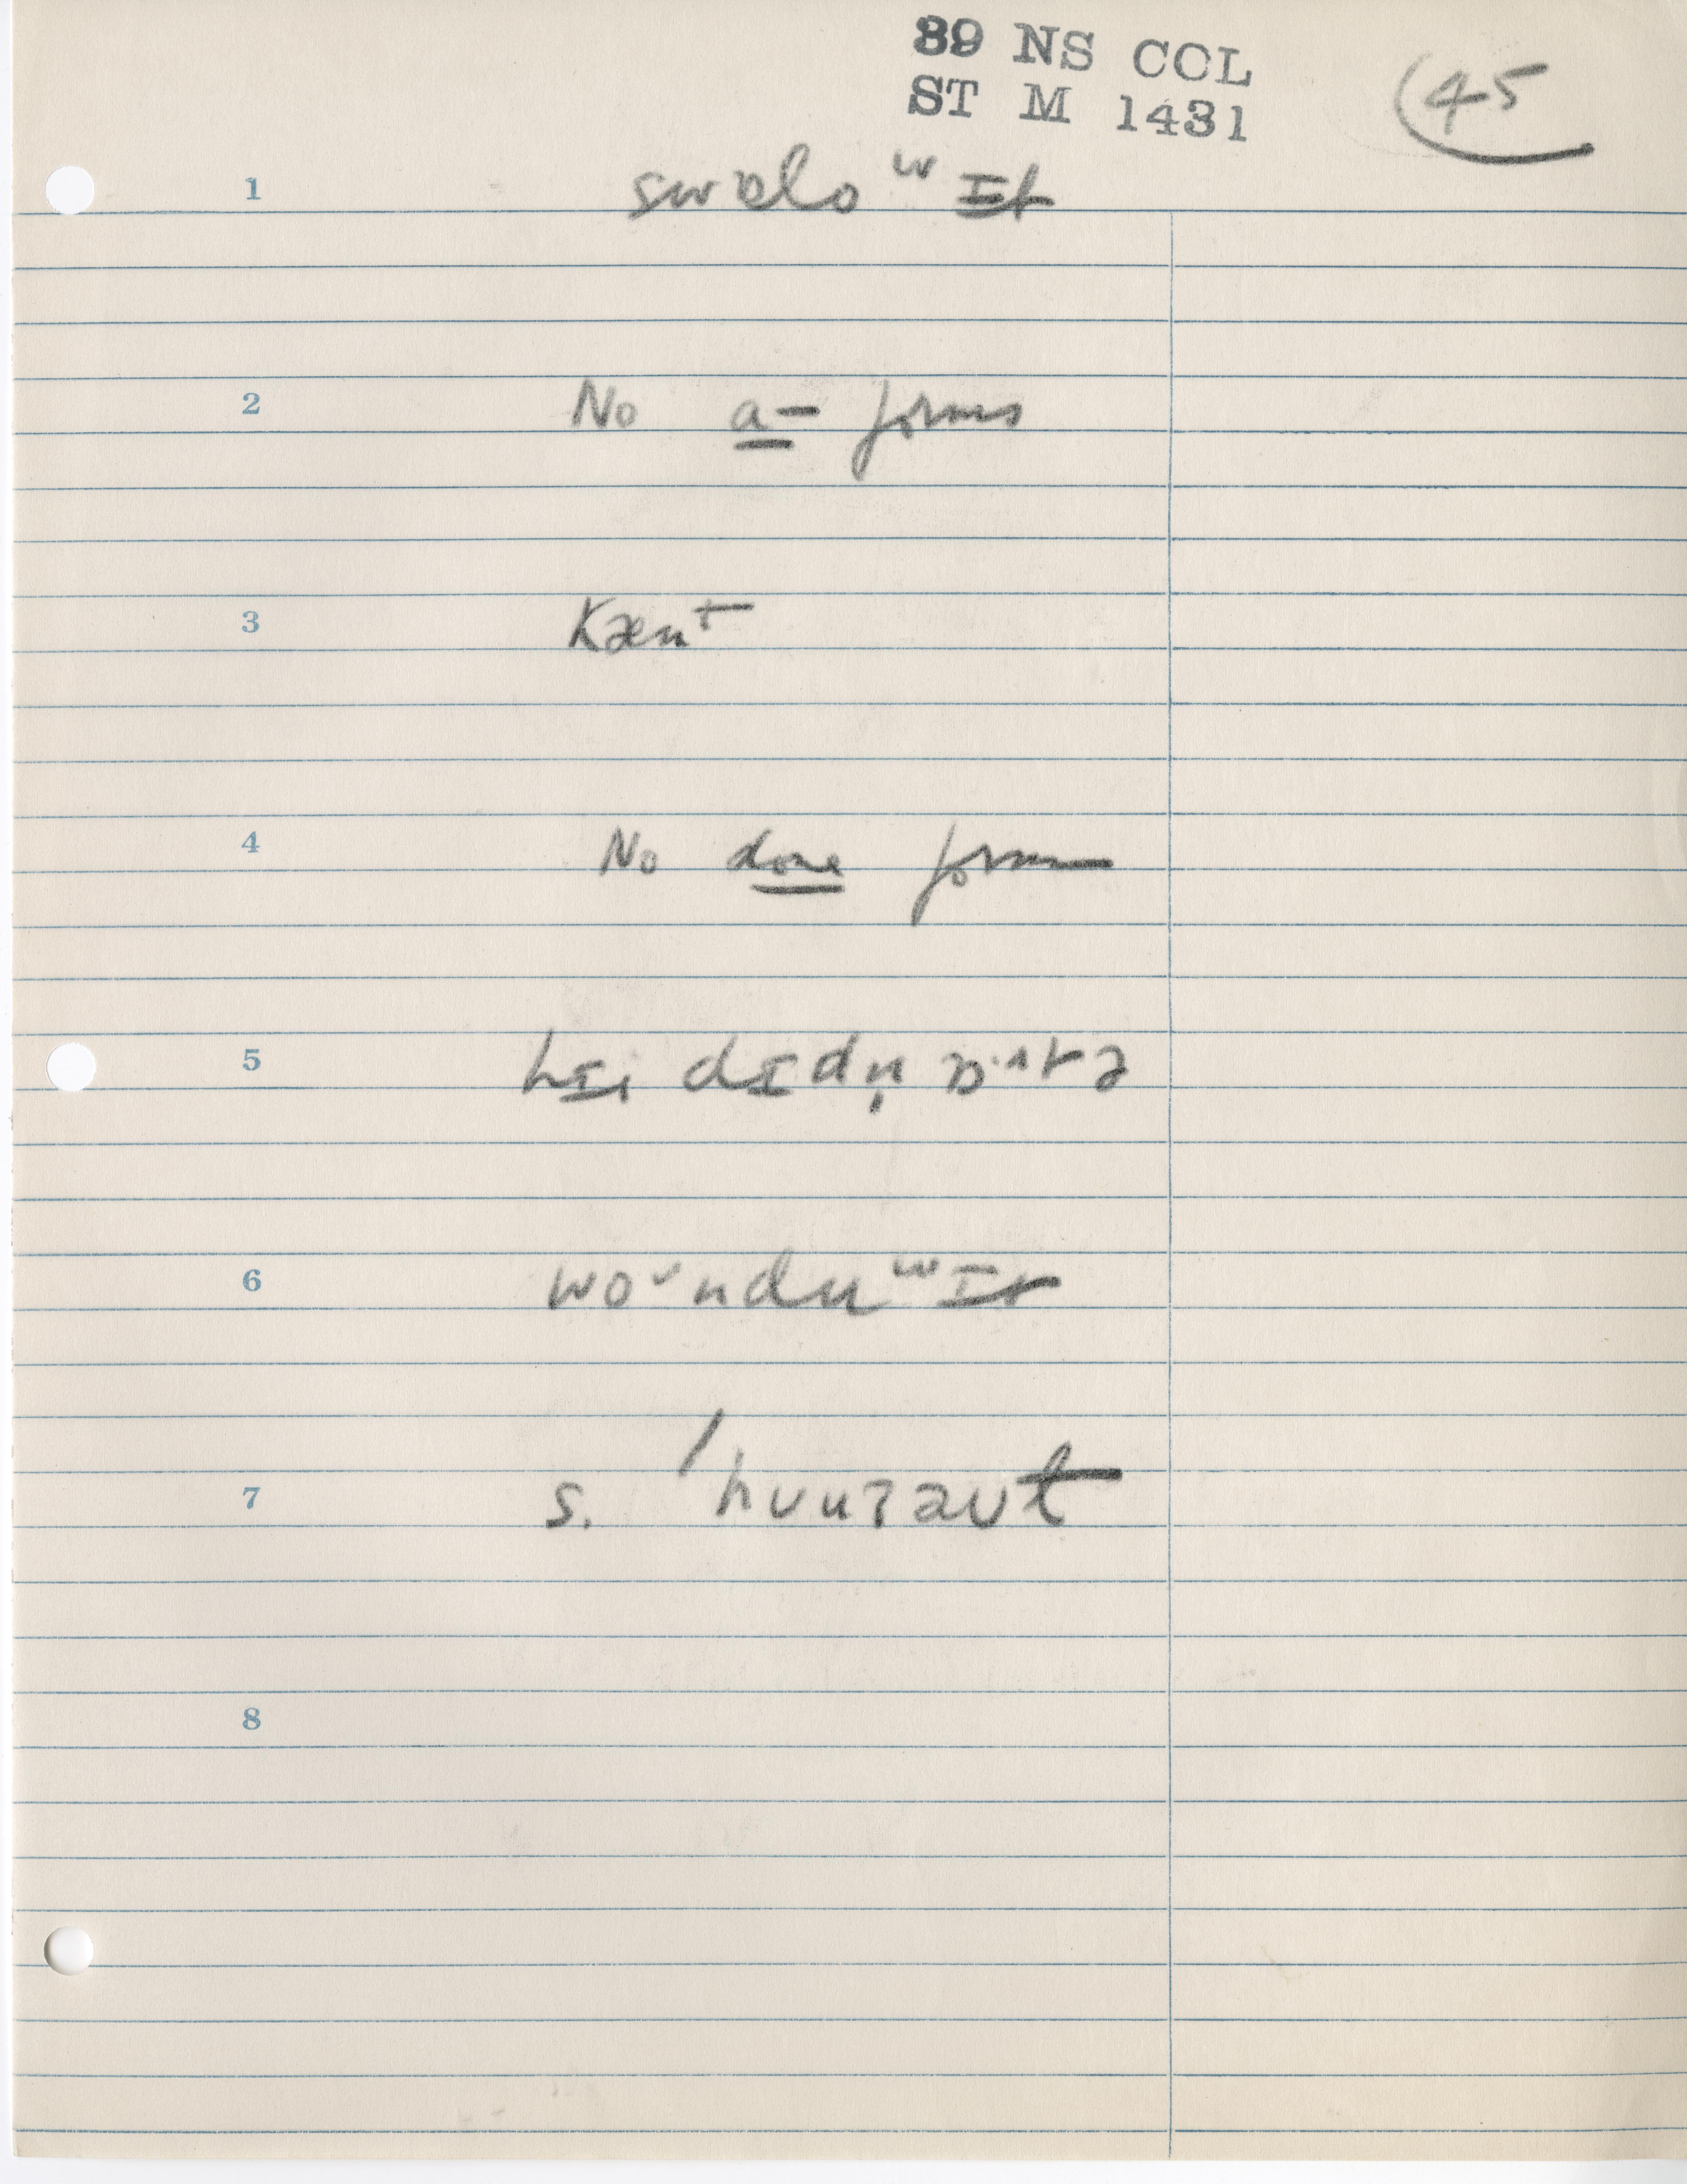 89 NS COL
ST M 1431
45
1 swɒlo ʷ ɪt
2 No a- forms
3 Kænᵗ
4 No done forms
5 dɪdn̩
6 woᵛndn ʷ ɪt
7 s.
8